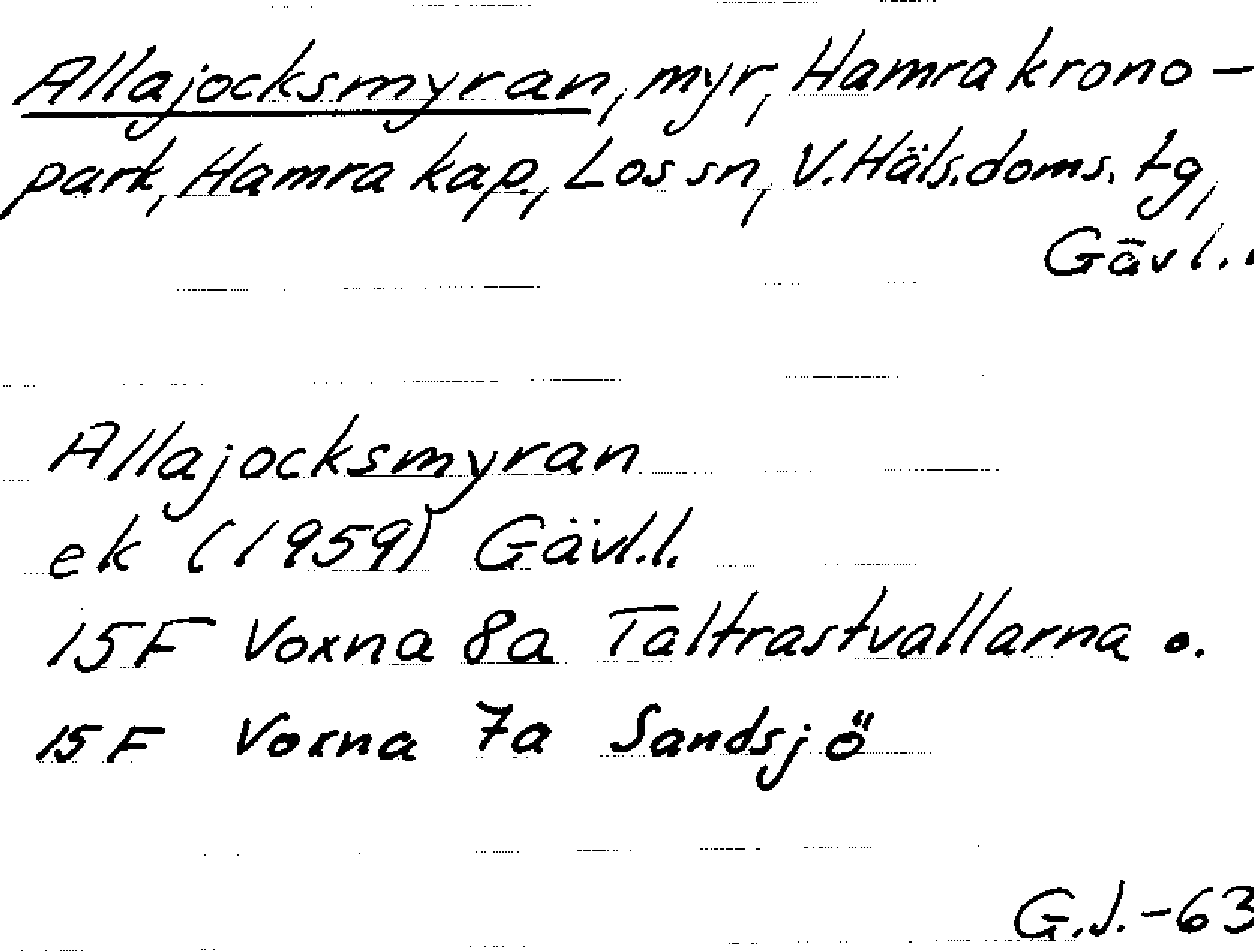 Allajocksmyran, myr, Hamra krono-
park, Hamra kap, Los sn, V. Häls. doms. tg,
Gävl.
Allajocksmyran
ek (1959) Gävl.l.
15F Voxna 8a Taltrastvallarna o.
15F Voxna 7a Sandsjö
G.J.-63